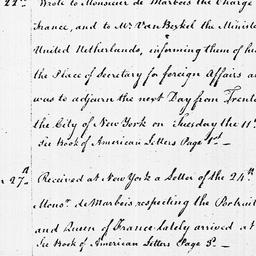 22d Wrote to Monsieur de Marbois the Charge
France, and to Mr. Van Berkel the Ministe
United Netherlands, informing them of his
the Place of Secretary for foreign Affairs an
was to adjourn the next Day from Trent
the City of New York on Tuesday the 11th
See Book of American Letters Page 1st
27th Received at New York a Letter of the 24th
Monsr. de Marbois respecting the Portrait
and Queen of France lately arrived at
See Book of American Letters Page 3d